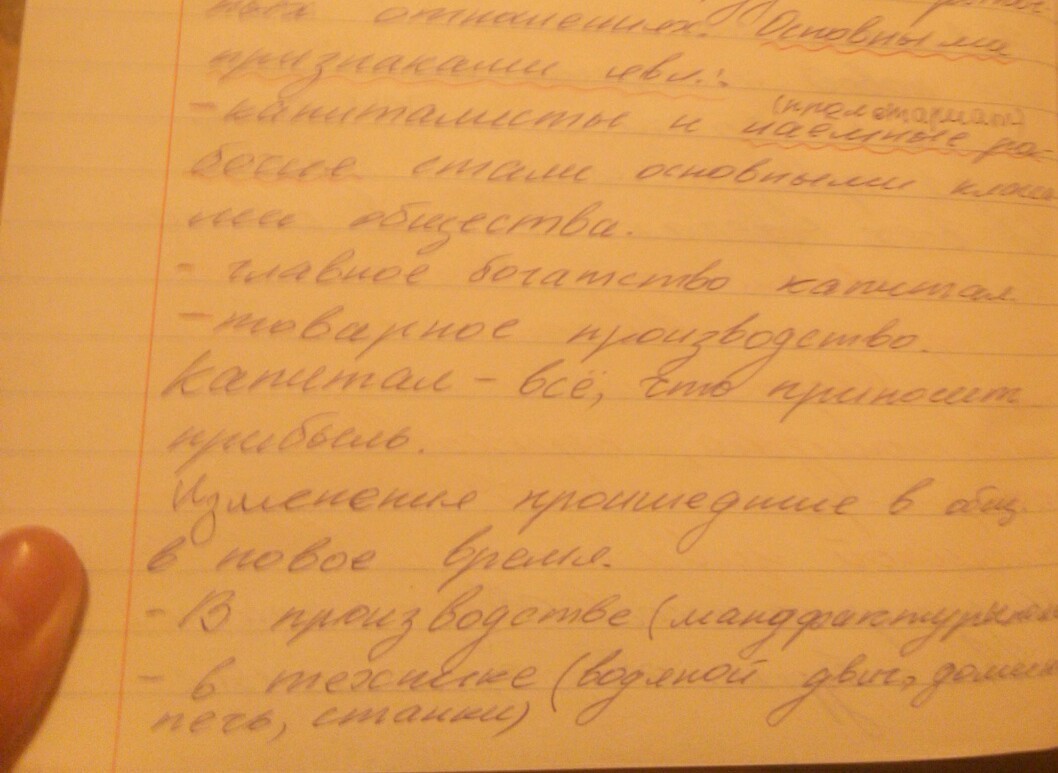 отношениях. Основными
признаками явл.:
(пролетариат)
- капиталисты и наемные ра-
бочие стали основными класса
ми общества.
- главное богатство капитал
- товарное производство.
Капитал - всё, что приносит
прибыль.
Изменения произшедшие в общ.
в новое время.
- В производстве (мануфактуры
- в технике (водяной двиг., домен
печь, станки)